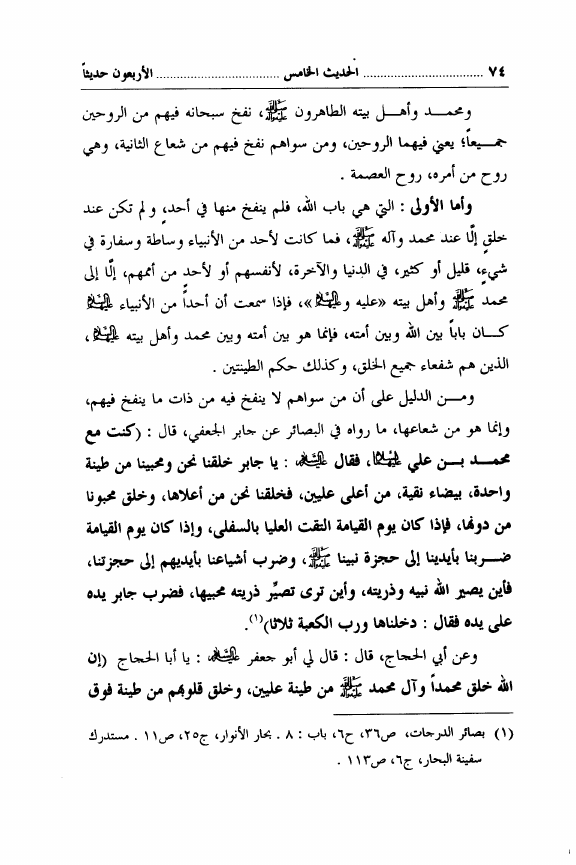 ٧٤ .................................. الحديث الخامس .................................. الأربعون حديثاً
ومحمــد وأهــل بيته الطاهرون ﷺ، نفخ سبحانه فيهم من الروحين
جمــيعاً؛ يعني فيهما الروحين، ومن سواهم نفخ فيهم من شعاع الثانية، وهي
روح من أمره، روح العصمة .
وأما الأولى : التي هي باب الله، فلم ينفخ منها في أحدٍ، و لم تكن عند
خلقٍ إلّا عند محمد وآله ﷺ، فما كانت لأحد من الأنبياء وساطة وسفارة في
شيءٍ، قليل أو كثير، في الدنيا والآخرة، لأنفسهم أو لأحد من أممهم، إلّا إلى
محمد ﷺ وأهل بيته «عليه و»، فإذا سمعت أن أحداً من الأنبياء
كــان باباً بين الله وبين أمته، فإنما هو بين أمته وبين محمد وأهل بيته ،
الذين هم شفعاء جميع الخلق، وكذلك حكم الطينتين .
ومــن الدليل على أن من سواهم لا ينفخ فيه من ذات ما ينفخ فيهم،
وإنما هو من شعاعها، ما رواه في البصائر عن جابر الجعفي، قال : (كنت مع
محمــد بــن علي ، فقال : يا جابر خلقنا نحن ومحبينا من طينة
واحدة، بيضاء نقية، من أعلى عليين، فخلقنا نحن من أعلاها، وخلق محبونا
من دونها، فإذا كان يوم القيامة التقت العليا بالسفلى، وإذا كان يوم القيامة
ضــربنا بأيدينا إلى حجزة نبينا ﷺ، وضرب أشياعنا بأيديهم إلى حجزتنا،
فأين يصير الله نبيه وذريته، وأين ترى تصيِّر ذريته محبيها، فضرب جابر يده
على يده فقال : دخلناها ورب الكعبة ثلاثا)(١).
وعن أبي الحجاج، قال : قال لي أبو جعفر : يا أبا الحجاج (إن
الله خلق محمداً وآل محمد ﷺ من طينة عليين، وخلق قلوبهم من طينة فوق
(١) بصائر الدرجات، ص٣٦، ح٦، باب : ٨ . بحار الأنوار، ج٢٥، ص١١ . مستدرك
سفينة البحار، ج٦، ص١١٣ .